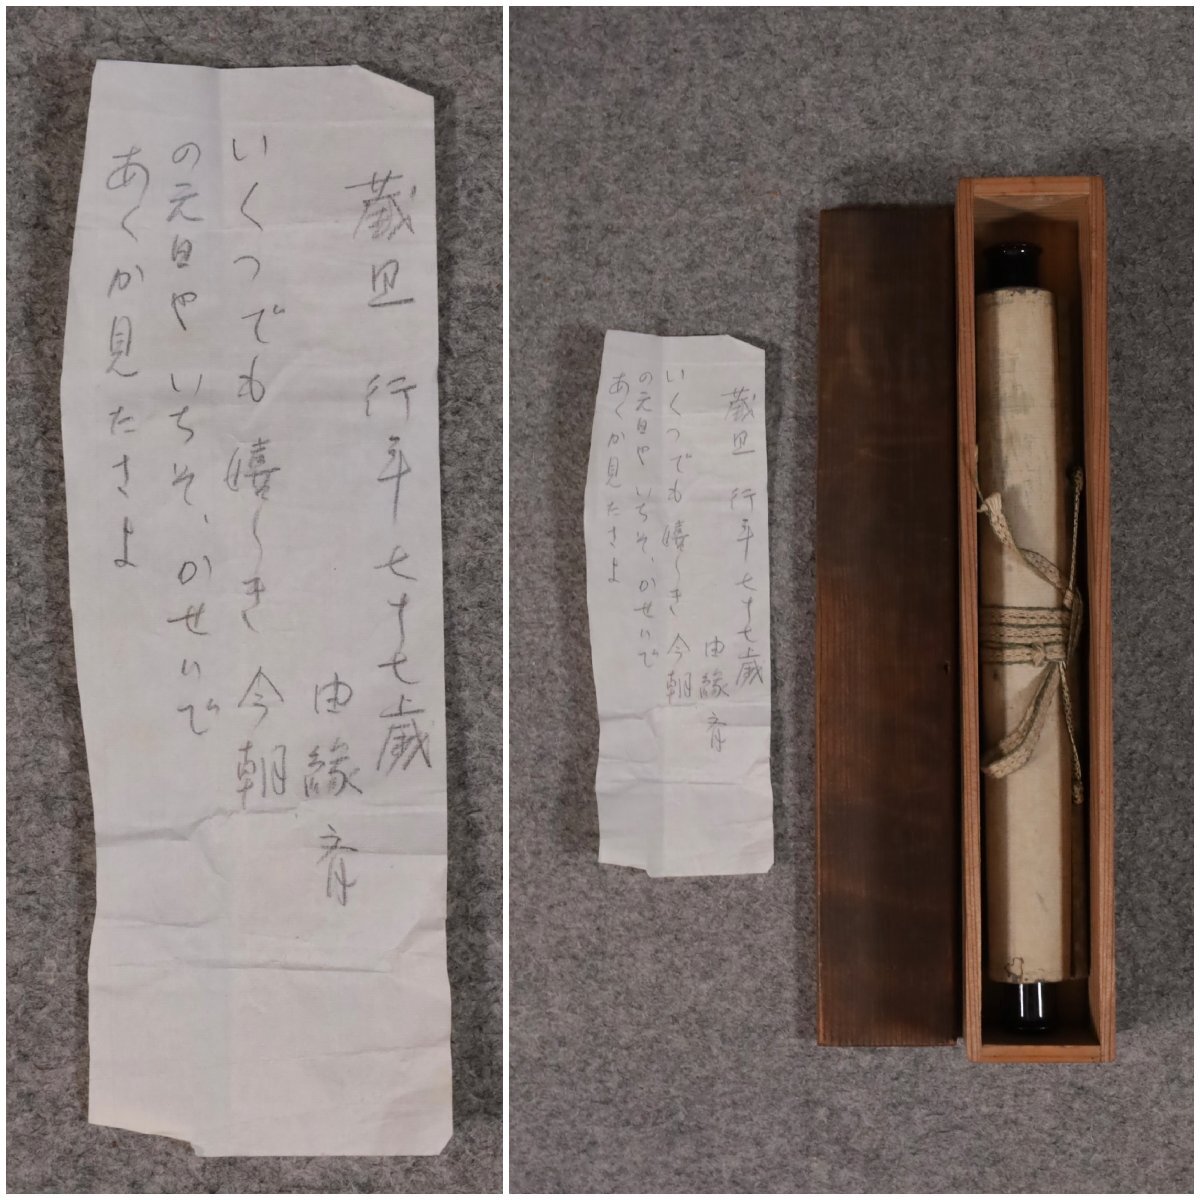 蔵旦 行年七十七歳
由縁斉
いくつでも嬉しき 今朝
の元日や いちそ、かせいで
あくか見たさよ
蔵旦 行年七十七歳
由縁斉
いくつでも嬉しき 今朝
の元日や いちそ、かせいで
あくか見たさよ